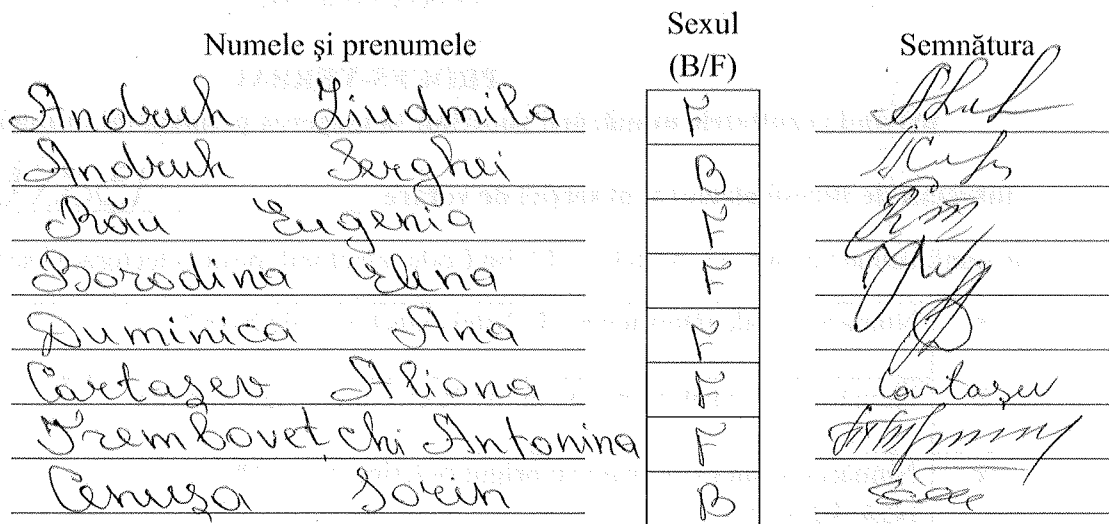 Numele şi prenumele Sexul (B/F) Semnătura
Andruh Liudmila F
Andruh Serghei B
Rău Eugenia F
Borodina Elena F
Duminica Ana F
Cartaşev Aliona F Cartaşev
Trembovețchi Antonina F
Cenuşa Sorin B